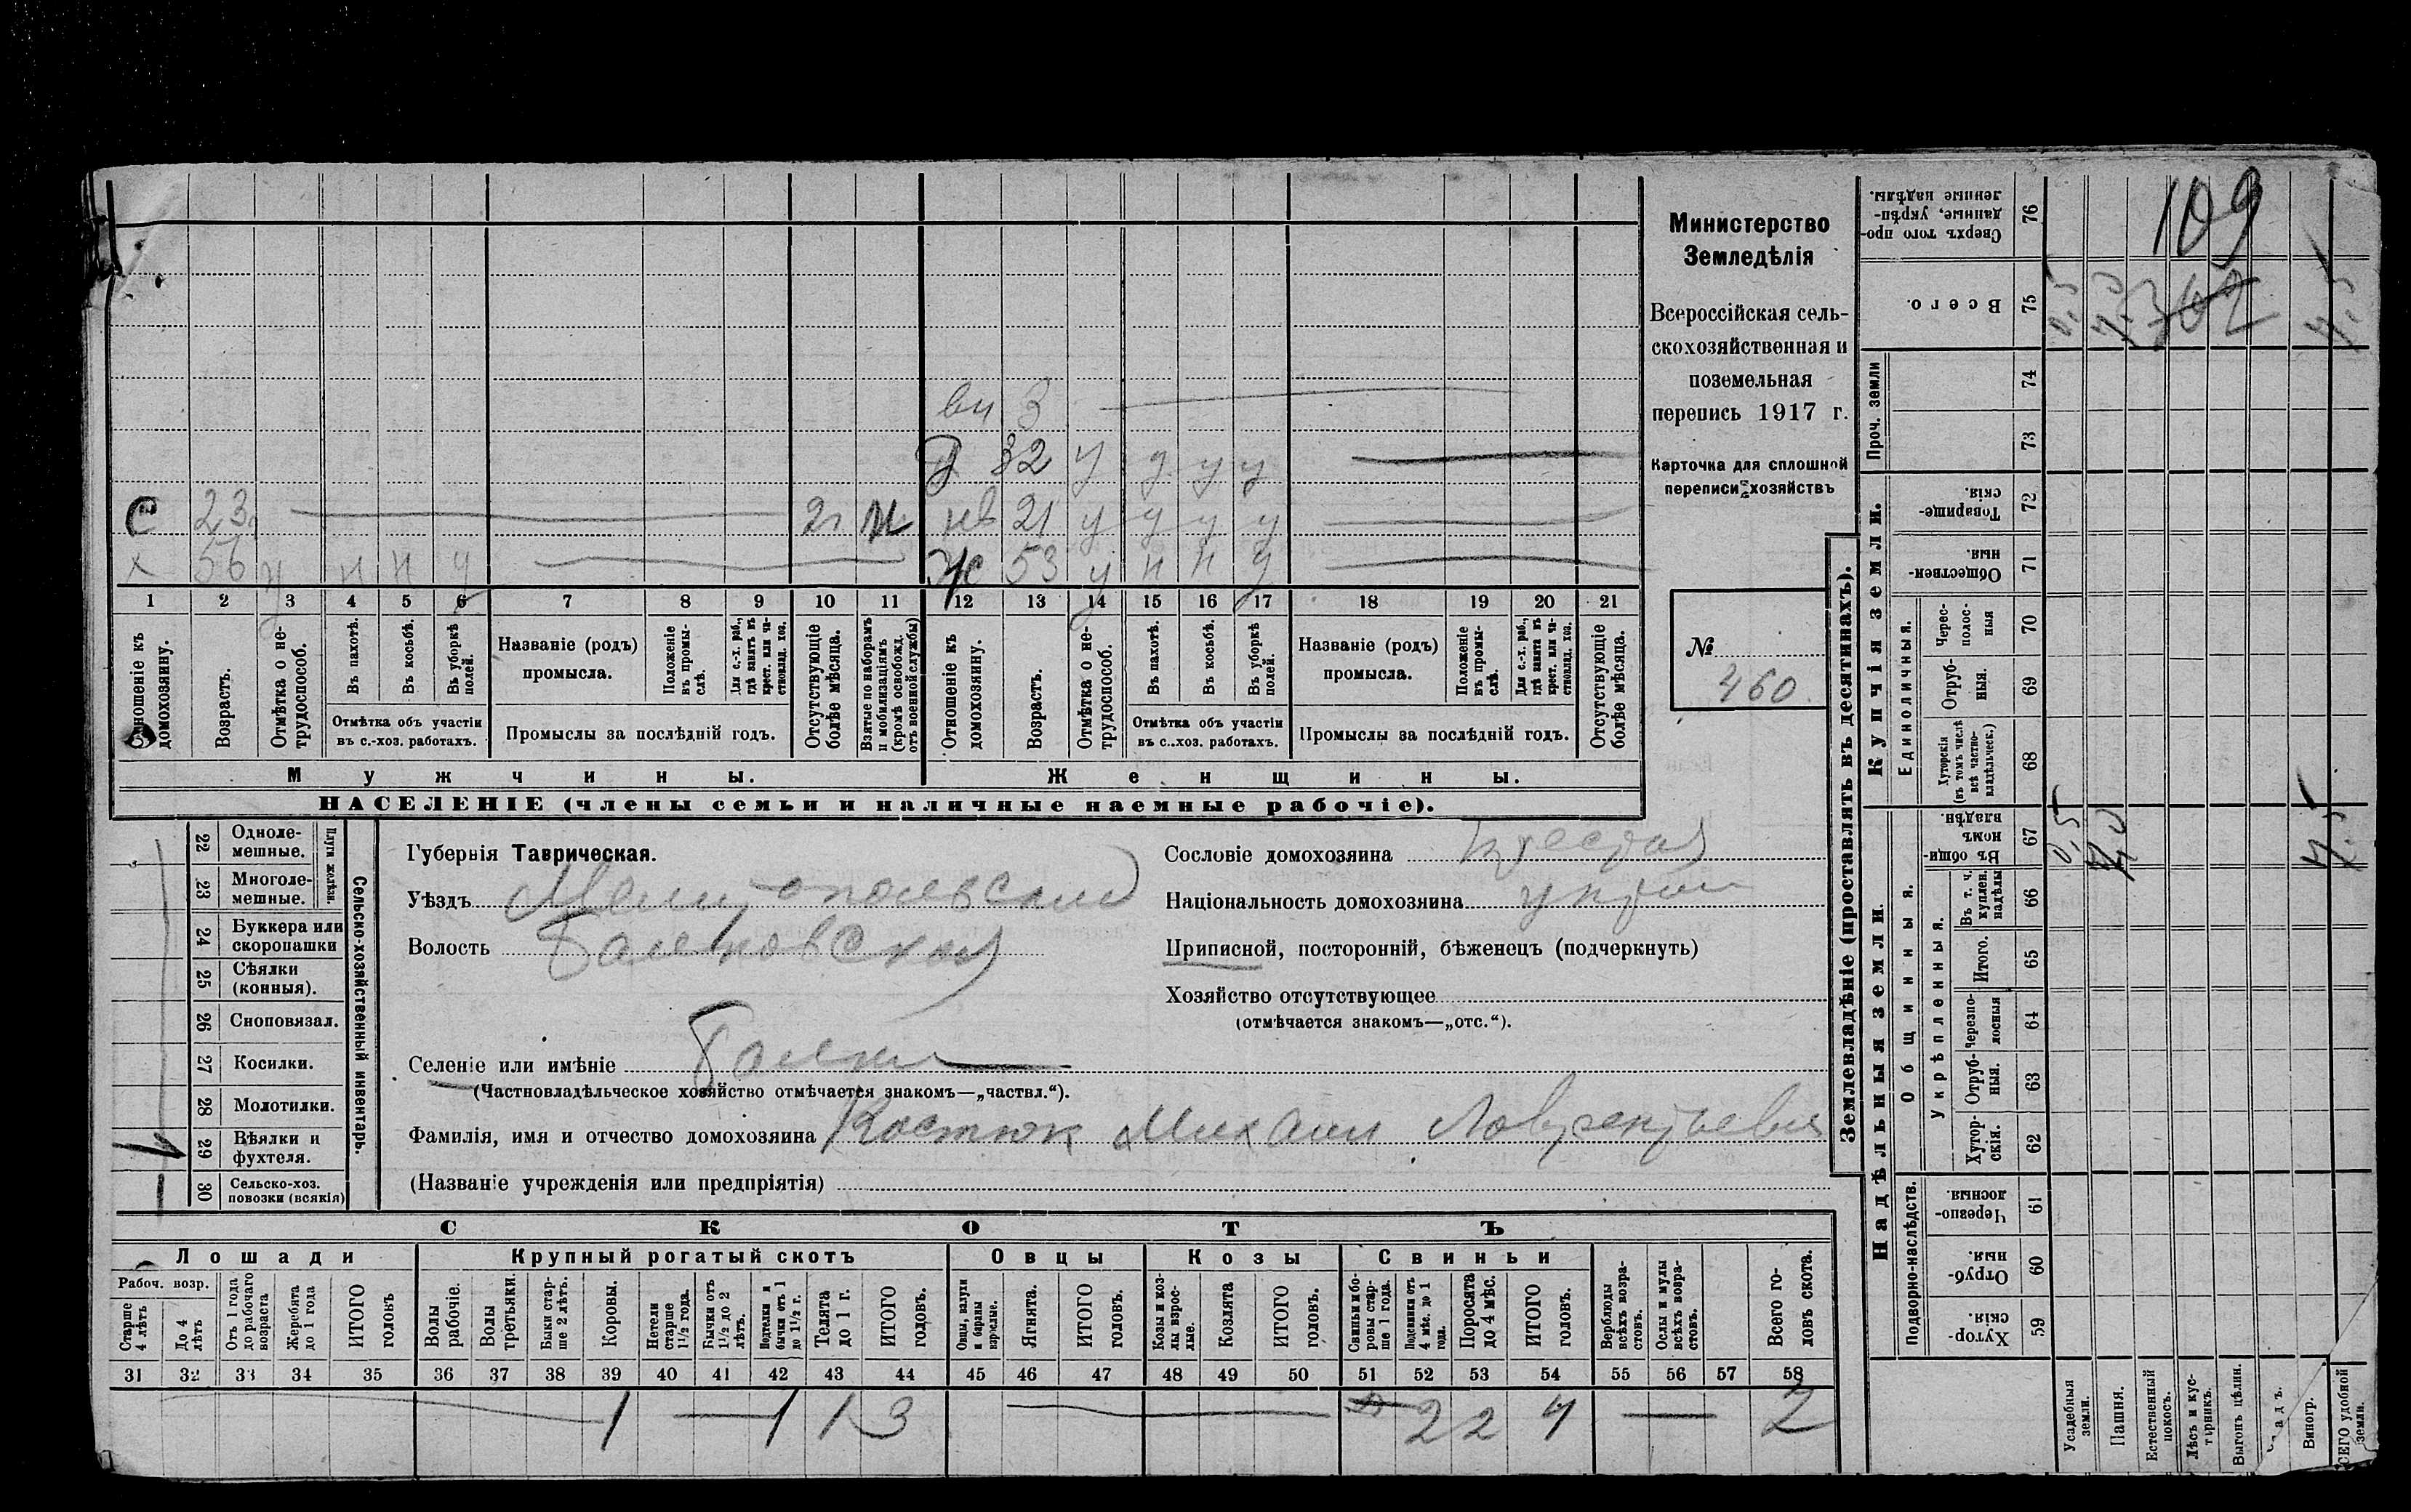 109
вн 3
д 32 у у у у
с 23 2г м нв 21 у у у у
х 56 у н н у ж 53 у н н у
1 2 3 4 5 6 7 8 9 10 11 12 13 14 15 16 17 18 19 20 21
Отношеніе къ домохозяину.
Возрастъ.
Отмѣтка о не-трудоспособ.
Въ пахотѣ.
Въ косьбѣ.
Въ уборкѣ полей.
Отмѣтка объ участіи въ с.-хоз. работахъ.
Названіе (родъ) промысла.
Положеніе въ промы-слѣ.
Для с.-х. раб., гдѣ занятъ въ крест. или ча-стновлад. хоз.
Промыслы за послѣдній годъ.
Отсутствующіе болѣе мѣсяца.
Взятые по наборамъ и мобилизаціямъ (кромѣ освобожд. отъ военной службы)
Отношеніе къ домохозяину.
Возрастъ.
Отмѣтка о не-трудоспособ.
Въ пахотѣ.
Въ косьбѣ.
Въ уборкѣ полей.
Отмѣтка объ участіи въ с.-хоз. работахъ.
Названіе (родъ) промысла.
Положеніе въ промы-слѣ.
Для с.-х. раб., гдѣ занятъ въ крест. или ча-стновлад. хоз.
Промыслы за послѣдній годъ.
Отсутствующіе болѣе мѣсяца.
Мужчины. Женщины.
НАСЕЛЕНІЕ (члены семьи и наличные наемные рабочіе).
Министерство
Земледѣлія
Всероссійская сель-
скохозяйственная и
поземельная
перепись 1917 г.
Карточка для сплошной
переписи хозяйствъ
№
460
Сельско-хозяйственный инвентарь.
Плуги желѣзн.
22 Одноле-мешные.
23 Многоле-мешные.
24 Буккера или скоропашки
25 Сѣялки (конныя).
26 Сноповязал.
27 Косилки.
28 Молотилки.
29 Вѣялки и фухтеля. 1
30 Сельско-хоз. повозки (всякія) 1
Губернія Таврическая.
Уѣздъ Мелитопольскій
Волость Балковская
Селеніе или имѣніе Балки
(Частновладѣльческое хозяйство отмѣчается знакомъ—„частвл.“).
Фамилія, имя и отчество домохозяина Костюк Михаил Лаврентьевич
(Названіе учрежденія или предпріятія)
Сословіе домохозяина
Національность домохозяина
Приписной, посторонній, бѣженецъ (подчеркнуть)
Хозяйство отсутствующее
(отмѣчается знакомъ—„отс.“).
СКОТЪ
Лошади Крупный рогатый скотъ Овцы Козы Свиньи
Рабоч. возр.
Старше 4 лѣтъ
До 4 лѣтъ
Отъ 1 года до рабочаго возраста
Жеребята до 1 года
ИТОГО головъ
Волы рабочіе.
Волы третьяки.
Быки стар-ше 2 лѣтъ.
Коровы.
Нетели старше 1½ года.
Бычки отъ 1½ до 2 лѣтъ.
Подтелки и бычки отъ 1 до 1½ г.
Телята до 1 г.
ИТОГО головъ.
Овцы, валухи и бараны взрослые.
Ягнята.
ИТОГО головъ.
Козы и коз-лы взрос-лые.
Козлята
ИТОГО головъ.
Свиньи и бо-ровы стар-ше 1 года.
Подсвинки отъ 4 мѣс. до 1 года.
Поросята до 4 мѣс.
ИТОГО головъ.
Верблюды всѣхъ возра-стовъ.
Ослы и мулы всѣхъ возра-стовъ.
Всего го-ловъ скота.
31 32 33 34 35 36 37 38 39 40 41 42 43 44 45 46 47 48 49 50 51 52 53 54 55 56 57 58
1 1 1 3 2 2 4 7
Землевладѣніе (проставлять въ десятинахъ).
Купчія земли.
Проч. земли
Надѣльныя земли.
Сверхъ того про-данные, укрѣп-ленные надѣлы. 76
Всего. 75
74
73
Товарище-скія. 72
Обществен-ныя. 71
Единоличныя.
Черес-полос-ныя 70
Отруб-ныя. 69
Хуторскія (въ томъ числѣ всѣ частно-владѣльческ.) 68
Общинныя.
Въ общи-номъ владѣн. 67
Укрѣпленныя.
Въ т. ч. куплен. надѣлы 66
Итого. 65
Черезпо-лосныя 64
Отруб-ныя. 63
Хутор-скія. 62
Подворно-наслѣдств.
Черезпо-лосныя. 61
Отруб-ныя. 60
Хутор-скія. 59
0,5 4,0 4,5
0,5 4,0 4,5
Усадебныя земли.
Пашня.
Естественный покосъ.
Лѣсъ и кус-тарникъ.
Выгонъ цѣлин.
Виногр.